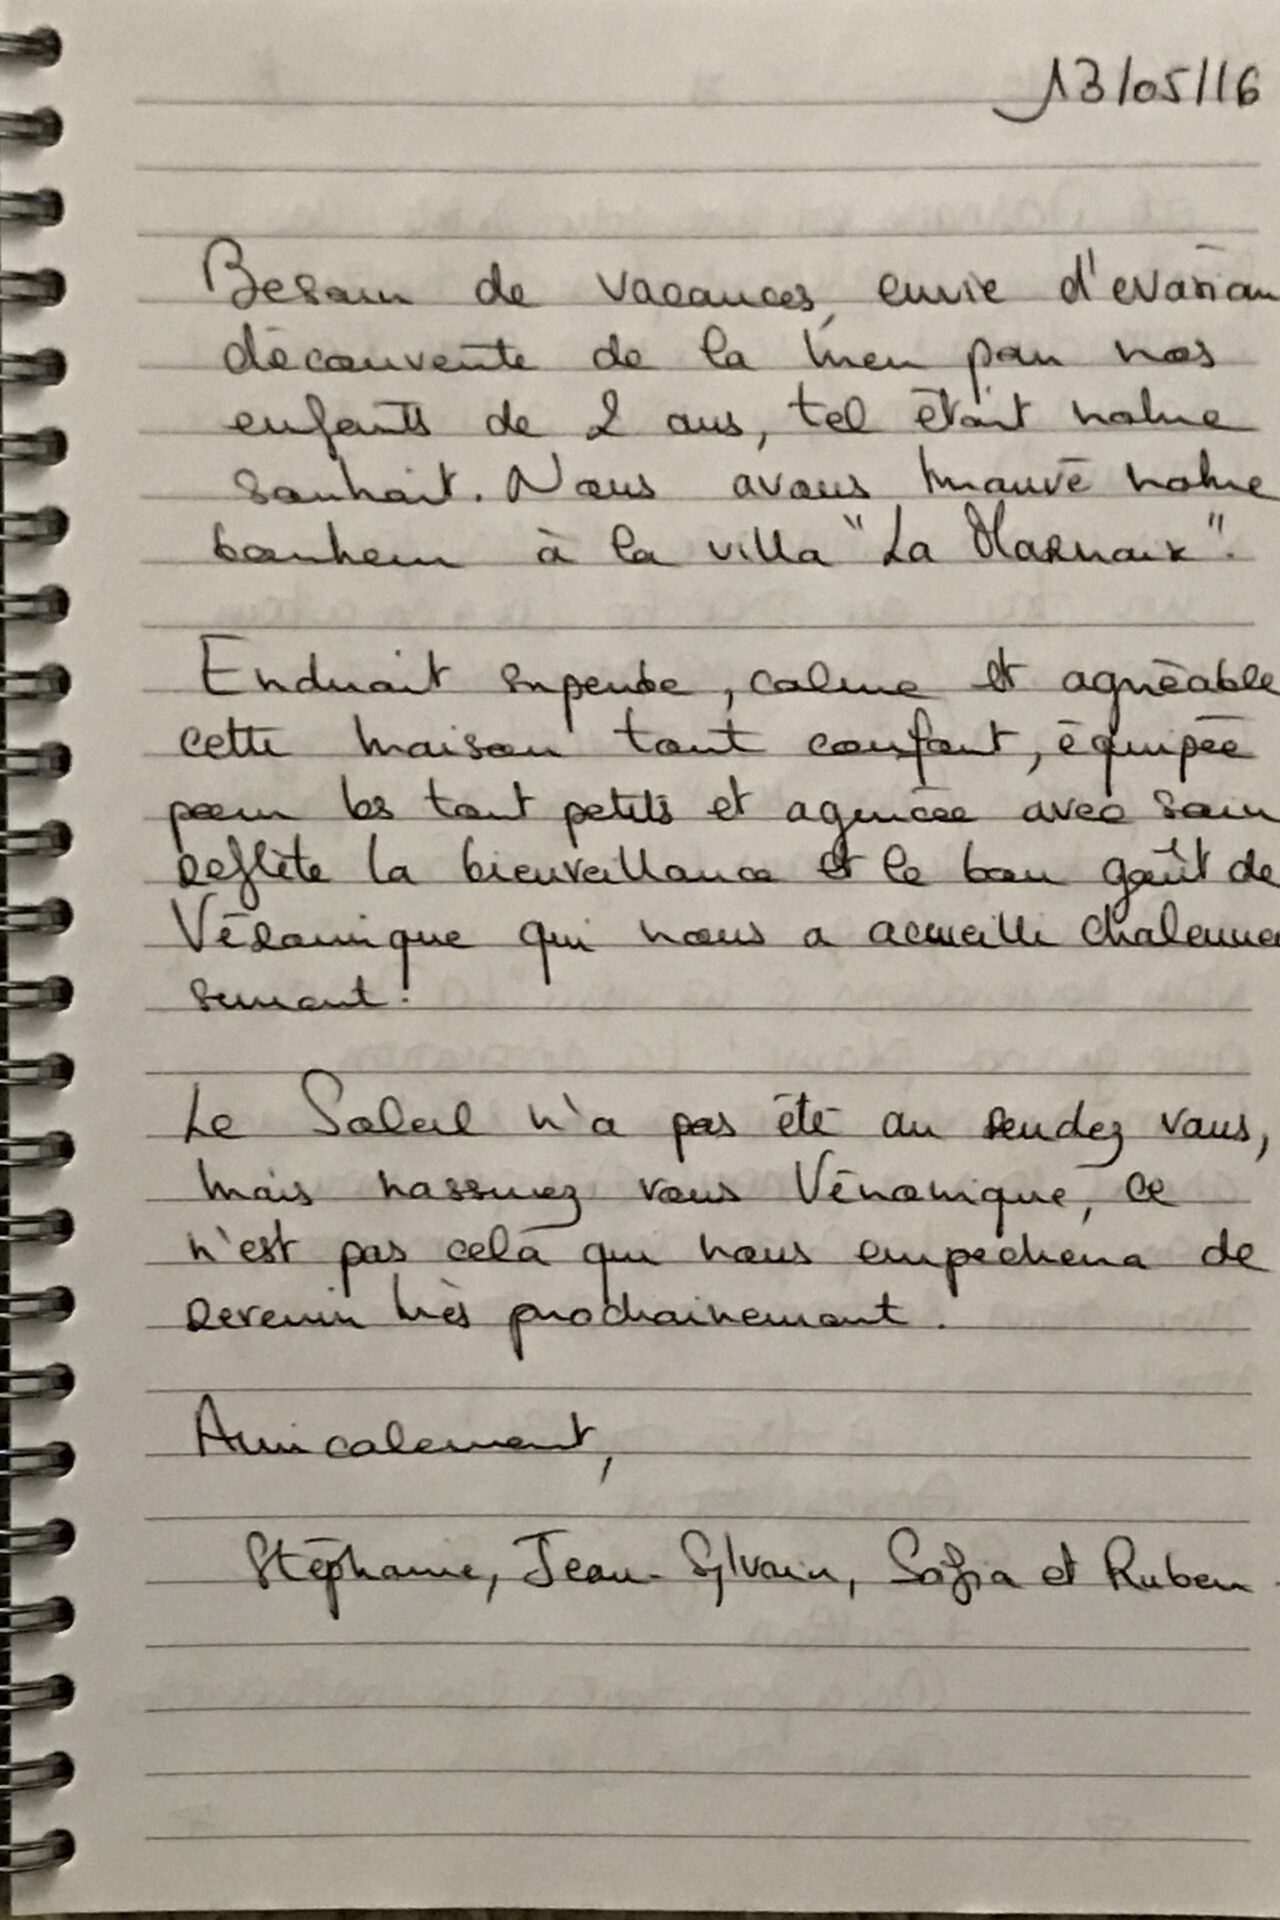 13/05/16
Besoin de vacances, envie d'evasion
découverte de la mer par nos
enfants de 2 ans, tel était notre
souhait. Nous avons trouvé notre
bonheur à la villa "La Marnaix".
Endroit superbe, calme et agréable
cette maison tout confort, équipée
pour les tout petits et agencée avec soin
reflète la bienveillance et le bon goût de
Véronique qui nous a accueilli chaleureu
sement.
Le Soleil n'a pas été au rendez vous,
mais rassurez vous Véronique, ce
n'est pas cela qui nous empechera de
revenir très prochainement.
Amicalement,
Stéphanie, Jean-Sylvain, Sofia et Ruben.